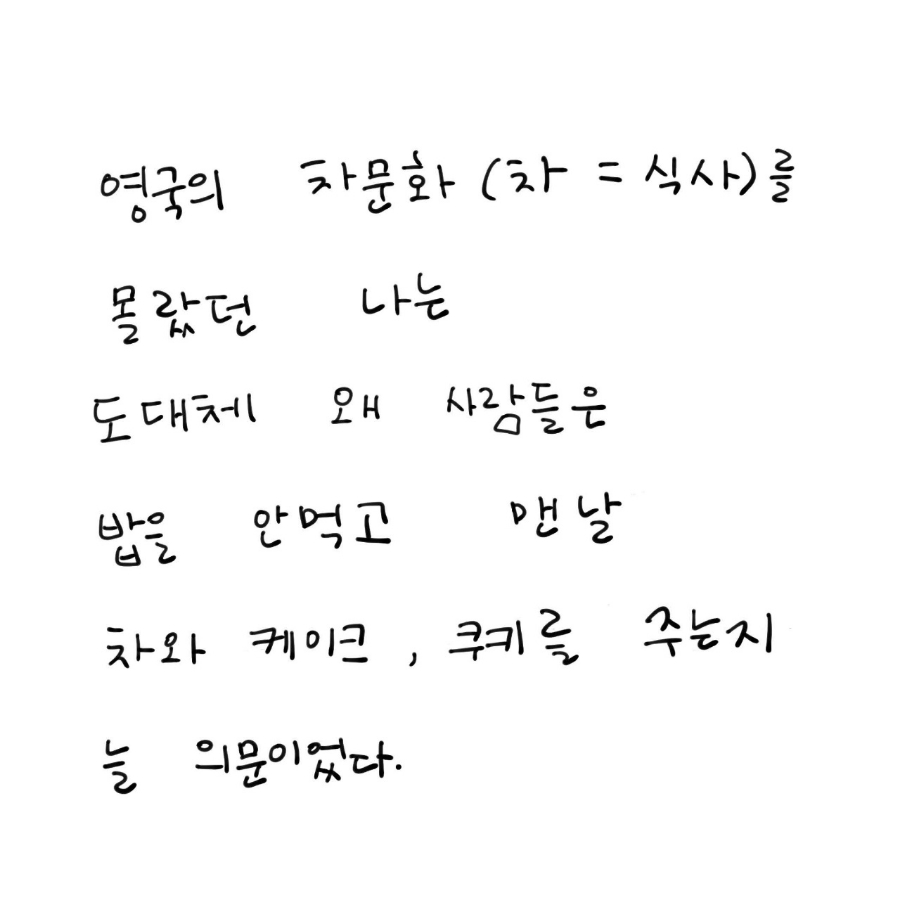 영국의 차문화 (차 = 식사)를
몰랐던 나는
도대체 왜 사람들은
밥을 안먹고 맨날
차와 케이크, 쿠키를 주는지
늘 의문이었다.